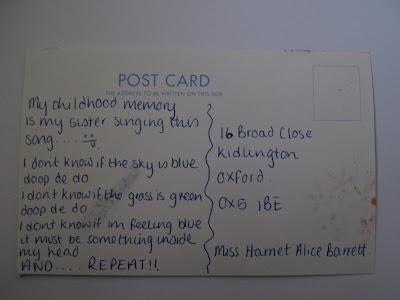 POST CARD
THE ADDRESS TO BE WRITTEN ON THIS SIDE
My childhood memory
is my sister singing this
song....
I dont know if the sky is blue
doop de do
I dont know if the grass is green
doop de do
I dont know if im feeling blue
it must be something inside
my head
AND.... REPEAT!!
16 Broad Close
Kidlington
Oxford
OX5 1BE
Miss Harriet Alice Barrett